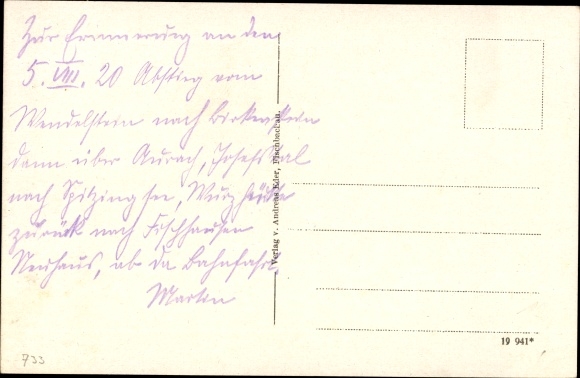 Zur Erinnerung an den
5. VIII. 20 Abstieg vom
Wendelstein nach Birkenstein
dann über Aurach, Josefstal
nach Spitzingsee, Wurzhütte
zurück nach Fischhausen
Neuhaus, ab da Bahnfahrt
Martin
Verlag v. Andreas Eder, Fischbachau.
19 941*
733